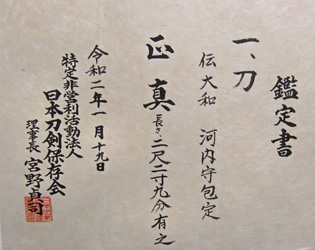 鑑定書
一、刀
伝大和 河内守包定
正真 長さ二尺二寸九分有之
令和二年一月十九日
特定非営利活動法人
日本刀剣保存会
理事長 宮野貞司